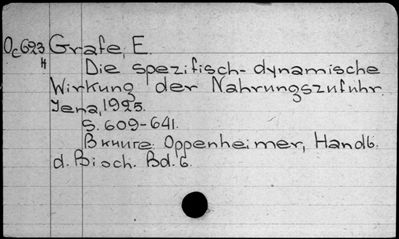 Ос623 Grafe, E.
н Die spezifisch-dynamische
Wirkung der Nahrungszufuhr.
Jena, 1925.
S. 609-641.
В книге: Oppenheimer, Handb.
d. Bioch. Bd. 6.